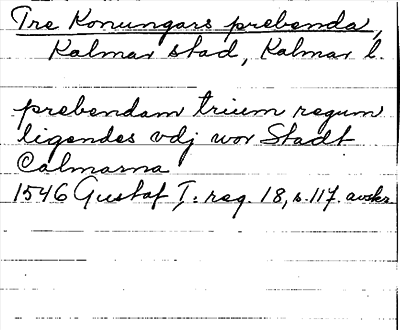 Tre Konungars prebenda,
Kalmar stad, Kalmar l.
prebendam trium regum
ligendes vdj wor Stadt
Calmarna
1546 Gustaf I: reg. 18, s. 117. avskr.